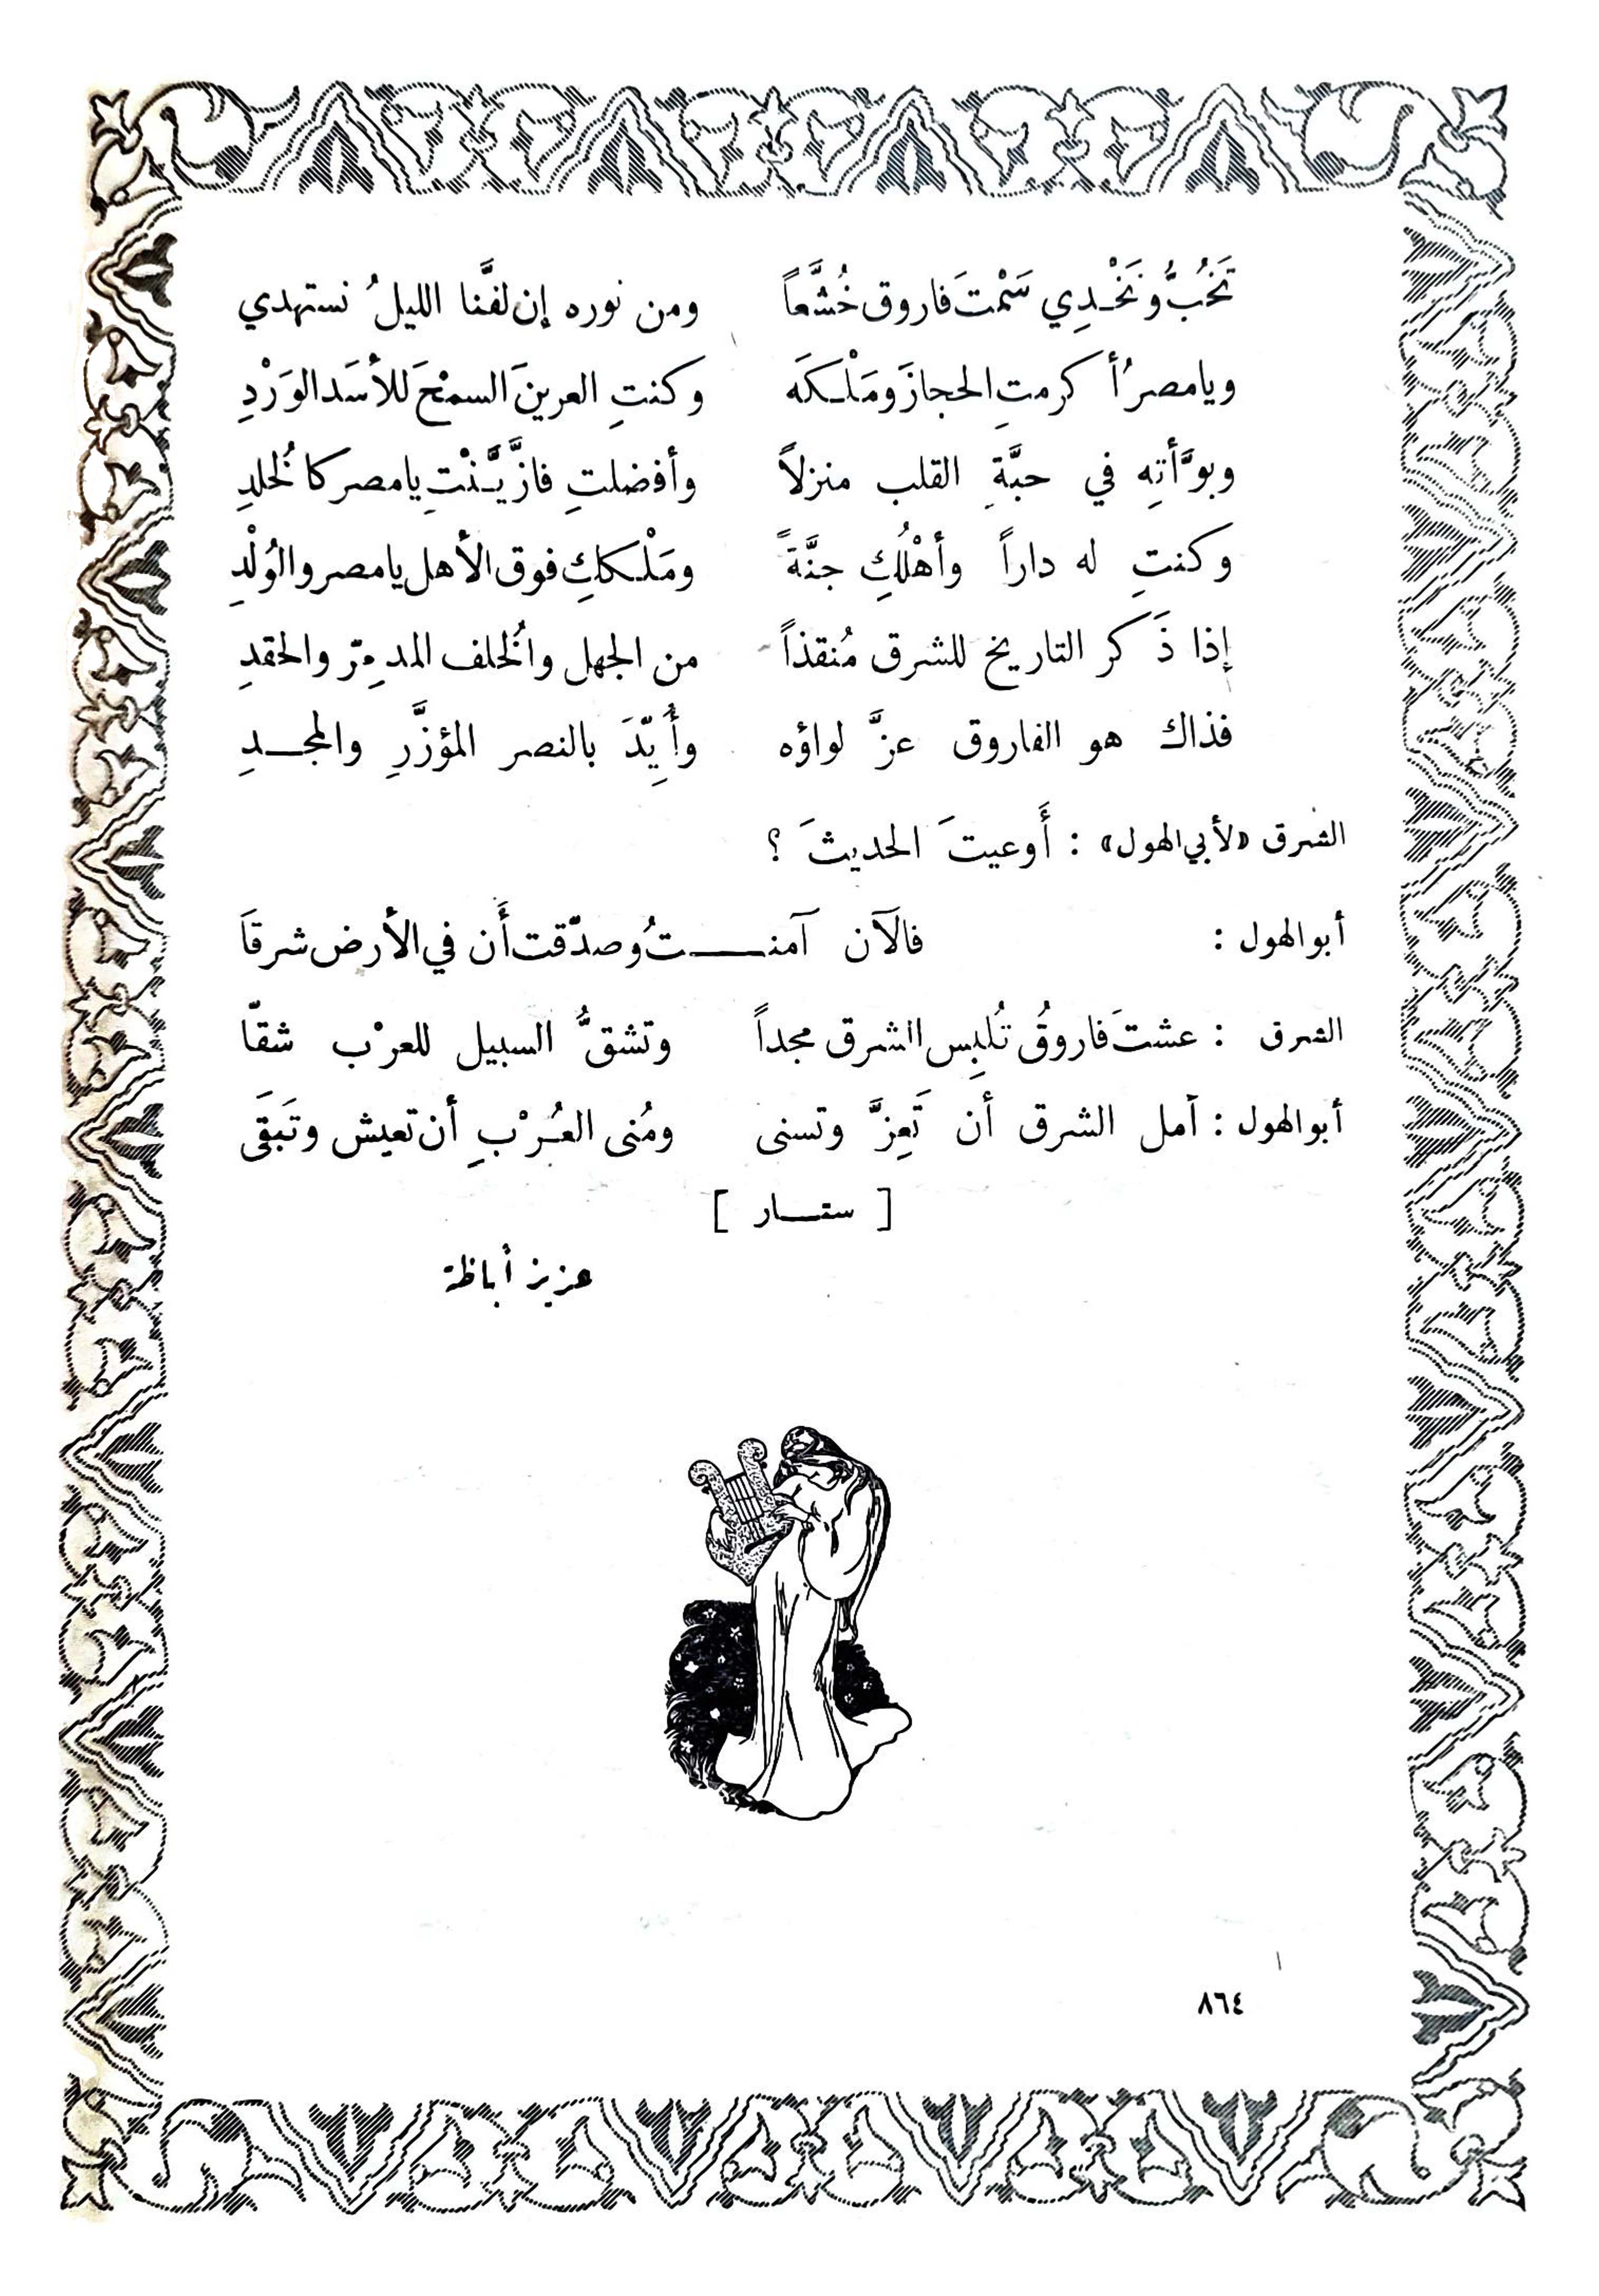 تَخُبُّ وتَخْدِي سَمْتَ فاروق خُشَّعاً ومن نوره إن لفَّنا الليلُ نستهدي
ويا مصرُ أكرمتِ الحجازَ ومَلْكَه وكنتِ العرينَ السمْحَ للأسَد الوَرْدِ
وبوَّأتِه في حبَّةِ القلب منزلاً وأفضلتِ فازَّيَّنْتِ يا مصر كالخُلدِ
وكنتِ له داراً وأهْلُكِ جنَّةً ومَلْككِ فوق الأهل يا مصر والوُلْدِ
إذا ذَكر التاريخ للشرق مُنقذاً من الجهل والخُلف المدمِّر والحقدِ
فذاك هو الفاروق عزَّ لواؤه وأُيِّدَ بالنصر المؤزَّرِ والمجدِ
الشرق «لأبي الهول» : أَوعيتَ الحديثَ ؟
أبو الهول : فالآن آمنـــتُ وصدّقت أَن في الأرض شرقاَ
الشرق : عشتَ فاروقُ تُلبِس الشرق مجداً وتشقُّ السبيل للعرْب شقّا
أبو الهول : أمل الشرق أن تَعِزَّ وتسنى ومُنى العُرْبِ أن تعيش وتَبقَى
[ ستــار ]
عزيز أباظة
٨٦٤